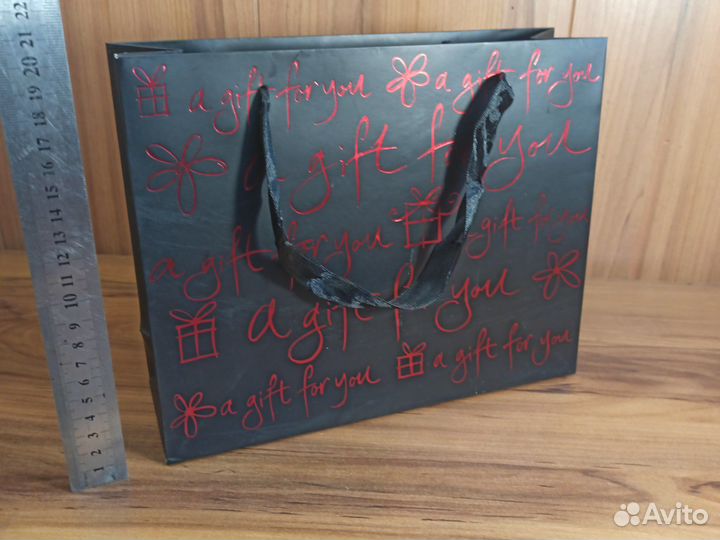 a gift for you a gift for you
a gift for you
a gift for you a gift for you
a gift for you
a gift for you a gift for you
22
21
20
19
18
17
16
15
14
13
12
11
10
9
8
7
6
5
4
3
2
1
Avito